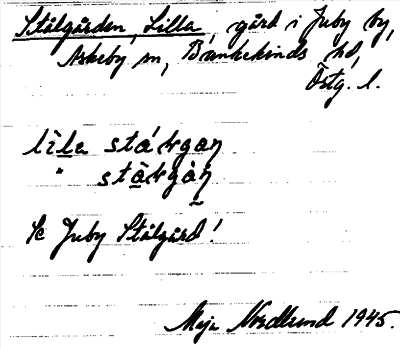 Stålgården, Lilla, gård i Juby by,
Askeby sn, Bankekinds hd,
Östg. l.
lìla stálgaŋ
" stàlgàŋ
Se Juby Stålgård!
Maja Nordlund 1945.